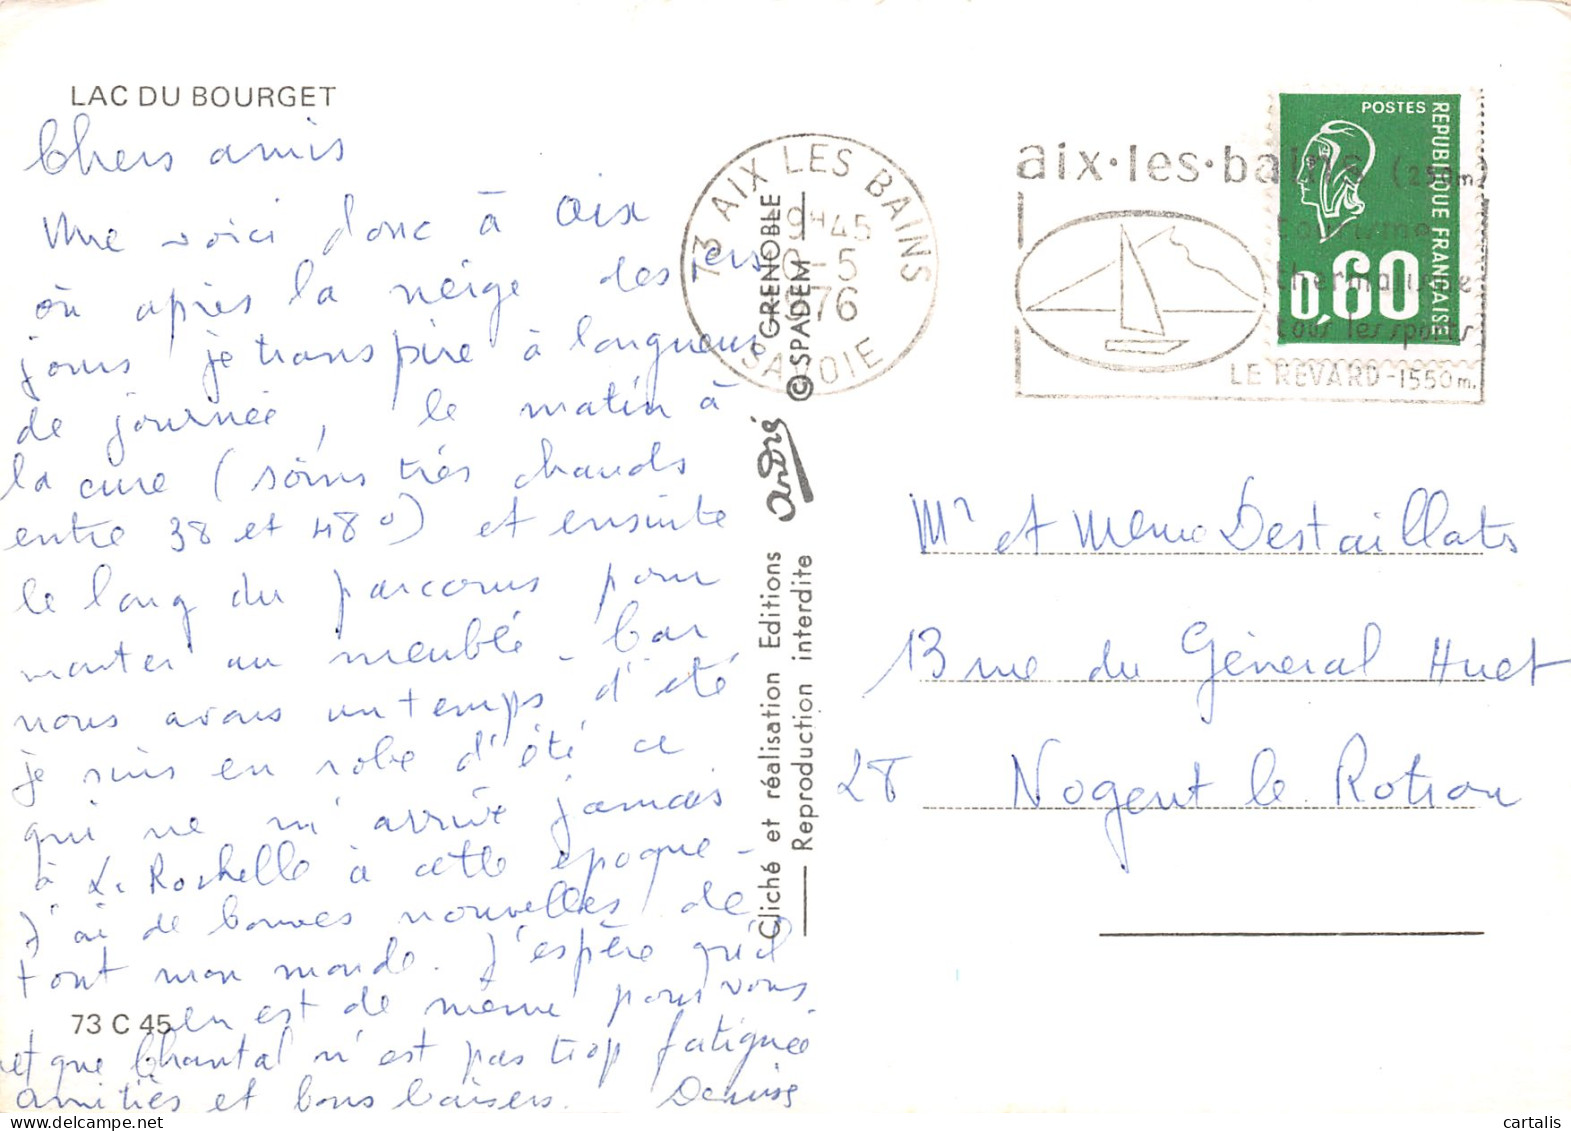 LAC DU BOURGET
Chers amis
Me voici donc à Aix
où après la neige des 1ers
jours je transpire à longueur
de journée, le matin à
la cure (soins très chauds
entre 38 et 48°) et ensuite
le long du parcours pour
monter au meublé. Car
nous avons un temps d'été
je suis en robe d'été ce
qui ne m'arrive jamais
à La Rochelle à cette époque -
J'ai de bonnes nouvelles de
tout mon monde. J'espère qu'il
en est de même pour vous
et que Chantal n'est pas trop fatiguée
amitiés et bons baisers. Denise
73 C 45
Cliché et réalisation Editions André GRENOBLE
Reproduction interdite © SPADEM
73 AIX LES BAINS
9H45
-5
1976
SAVOIE
aix·les·bains (250m)
tourisme
thermalisme
tous les sports
LE REVARD-1550m.
POSTES
REPUBLIQUE FRANÇAISE
0,60
Mr et Meme Destaillats
13 rue du Général Huet
28 Nogent le Rotrou
cartalis